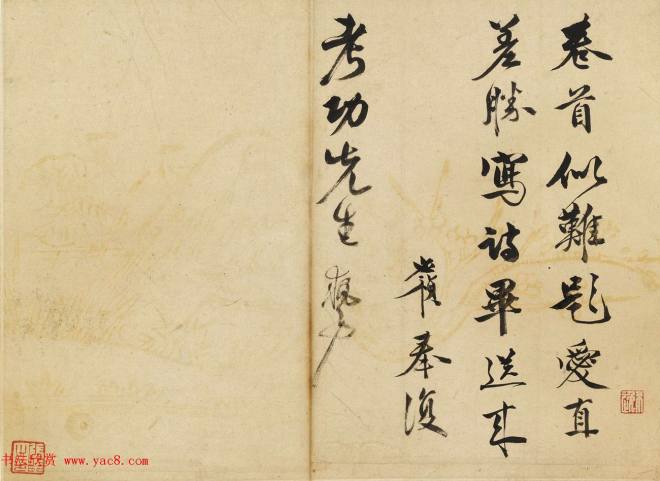 卷首似難題愛直
差勝寫詩畢送来
嶺奉復
考功先生
书法欣赏 www.yac8.com